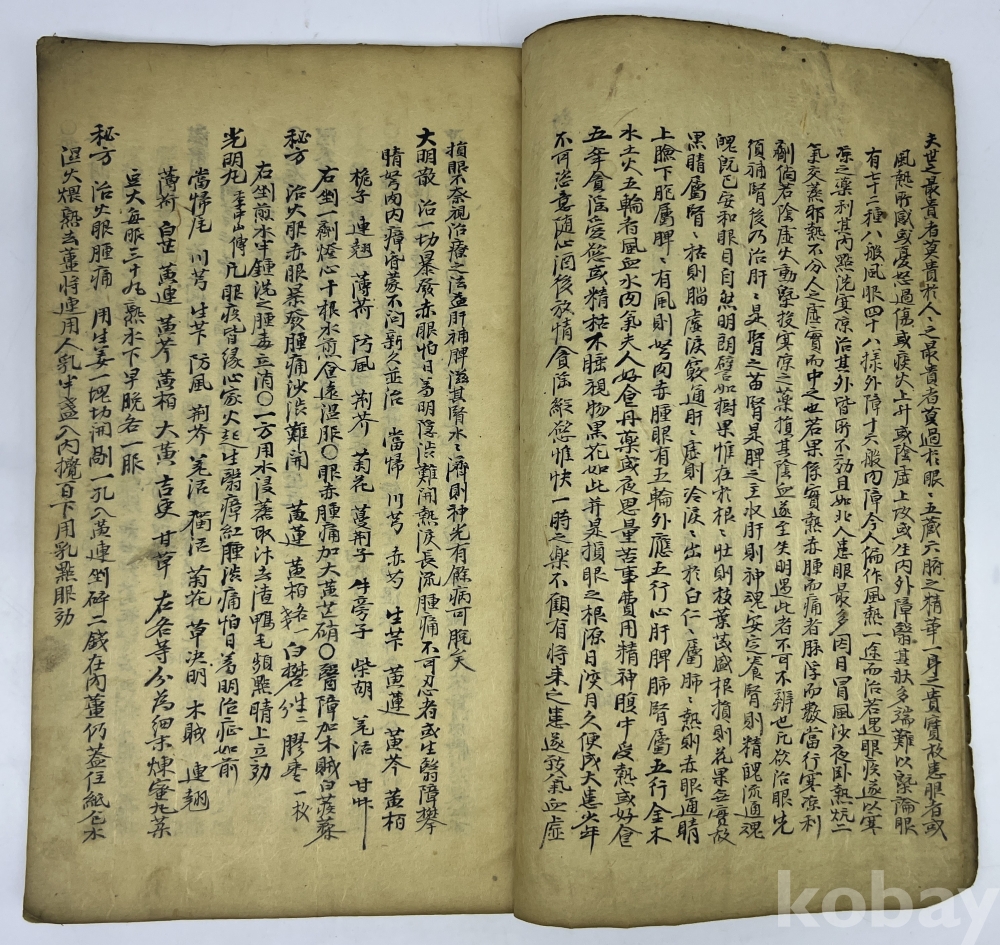 夫世之最貴者莫貴於人〻之最貴者莫過於眼〻五藏六腑之精華一身之貴實故患眼者或
風熱所感或憂怒過傷或痰火上升或陰虛上攻或生內外障翳其狀多端難以槩論眼
有七十二種八般風眼四十八樣外障十六般內障今人偏作風熱一途而治若遇眼疾遂以寒
凉之藥利其內點洗寒凉治其外皆所不効且如北人患眼最多因日冒風沙夜卧熱炕二
氣交蒸邪熱不分人之虛實而中之世若果係實熱赤腫而痛者脉浮而數當行寒凉利
劑倘若陰虛火動槩投寒凉之藥損其陰血遂至失明遇此者不可不辨也凡欲治眼先
須補腎後乃治肝〻是腎之苗腎是脾之主水肝則神魂安定養腎則精魄流通魂
魄既已安和眼目自然明朗譬如樹果惟在於根〻壯則枝葉茂盛根損則花果無實故
黑睛屬腎〻枯則腦虛淚竅通肝〻虛則冷淚〻出於白仁〻屬肺〻熱則赤眼通睛
上臉下胞屬脾〻有風則努肉赤腫眼有五輪外應五行心肝脾肺腎屬五行金木
水土火五輪者風血水肉氣夫人好食丹藥或夜思量苦事費用精神腹中受熱或好食
五辛貪淫愛慾或精枯不睡視物黑花如此并是損眼之根源日深月久便成大患少年
不可恣意隨心酒後放情貪淫縱慾惟快一時之樂不顧有將來之患遂致氣血虛
損眼不祭視治療之法益肝補脾滋其腎水〻濟則神光有餘病可脫矣
大明散 治一切暴發赤眼怕日羞明隱澁難開熱淚長流腫痛不可忍者或生翳障攀
睛努肉內瘴昏蒙不問新久並治 當歸 川芎 赤芍 生芐 黃蓮 黃芩 黃栢
梔子 連翹 薄荷 防風 荊芥 菊花 蔓荊子 牛蒡子 柴胡 羌活 甘艸
右剉一劑燈心十根水煎食遠溫服〇眼赤腫痛加大黃芒硝〇醫障加木賊白蒺藜
秘方 治火眼赤眼暴發腫痛沙澁難開 黃蓮 黃栢各一 白礬生二分 膠棗一枚
右剉煎水半鍾洗之腫毒立消〇一方用水浸蒸取汁去渣鴨毛頻點睛上立効
光明丸 李中山傳 凡眼疾皆緣心家火起生翳瘴紅腫澁痛怕日羞明治症如前
當歸尾 川芎 生芐 防風 荊芥 羌活 獨活 菊花 草決明 木賊 連翹
薄荷 白芷 黃連 黃芩 黃栢 大黃 吉更 甘草 右各等分為細末煉蜜丸菉
豆大每服三十丸熱水下早晚各一服
秘方 治火眼腫痛 用生姜一塊切開剮一孔入黃連剉碎二錢在內薑仍蓋住紙包水
濕火煨熟去薑將連用人乳半盞入內攪百下用乳點眼効
kobay